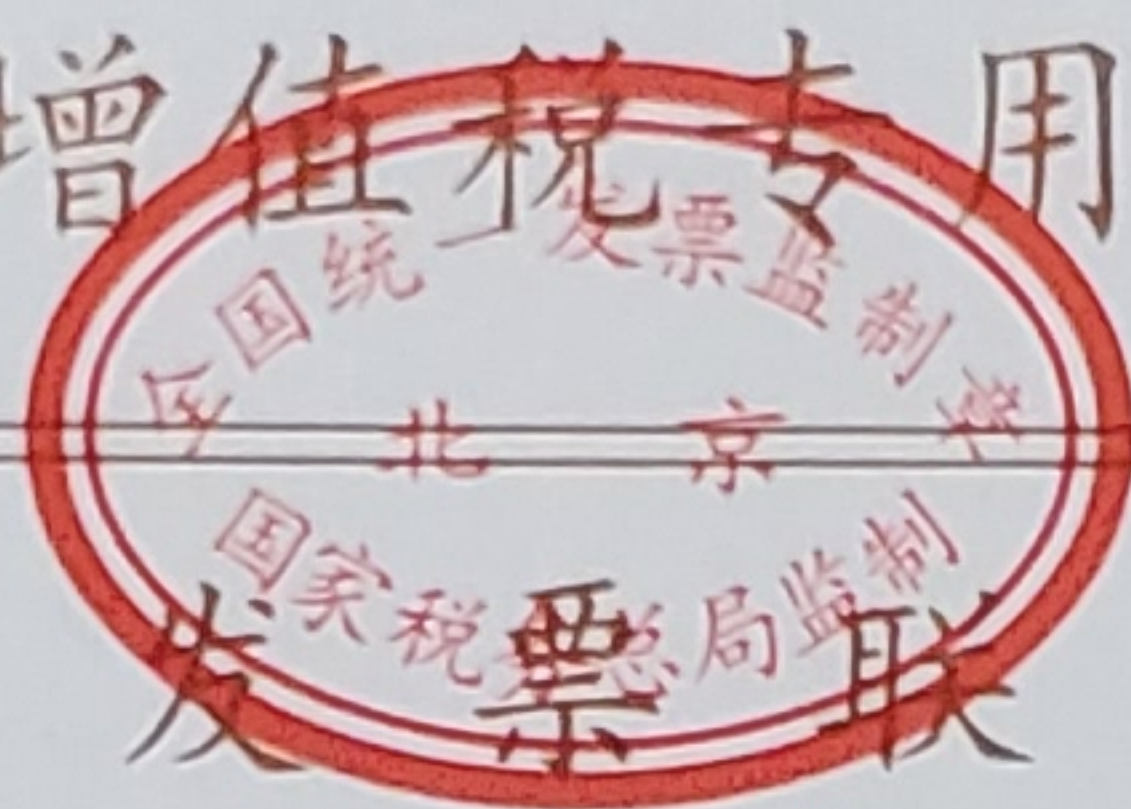 增值税专用
全国统一发票监制章
北京
国家税务总局监制
发票联